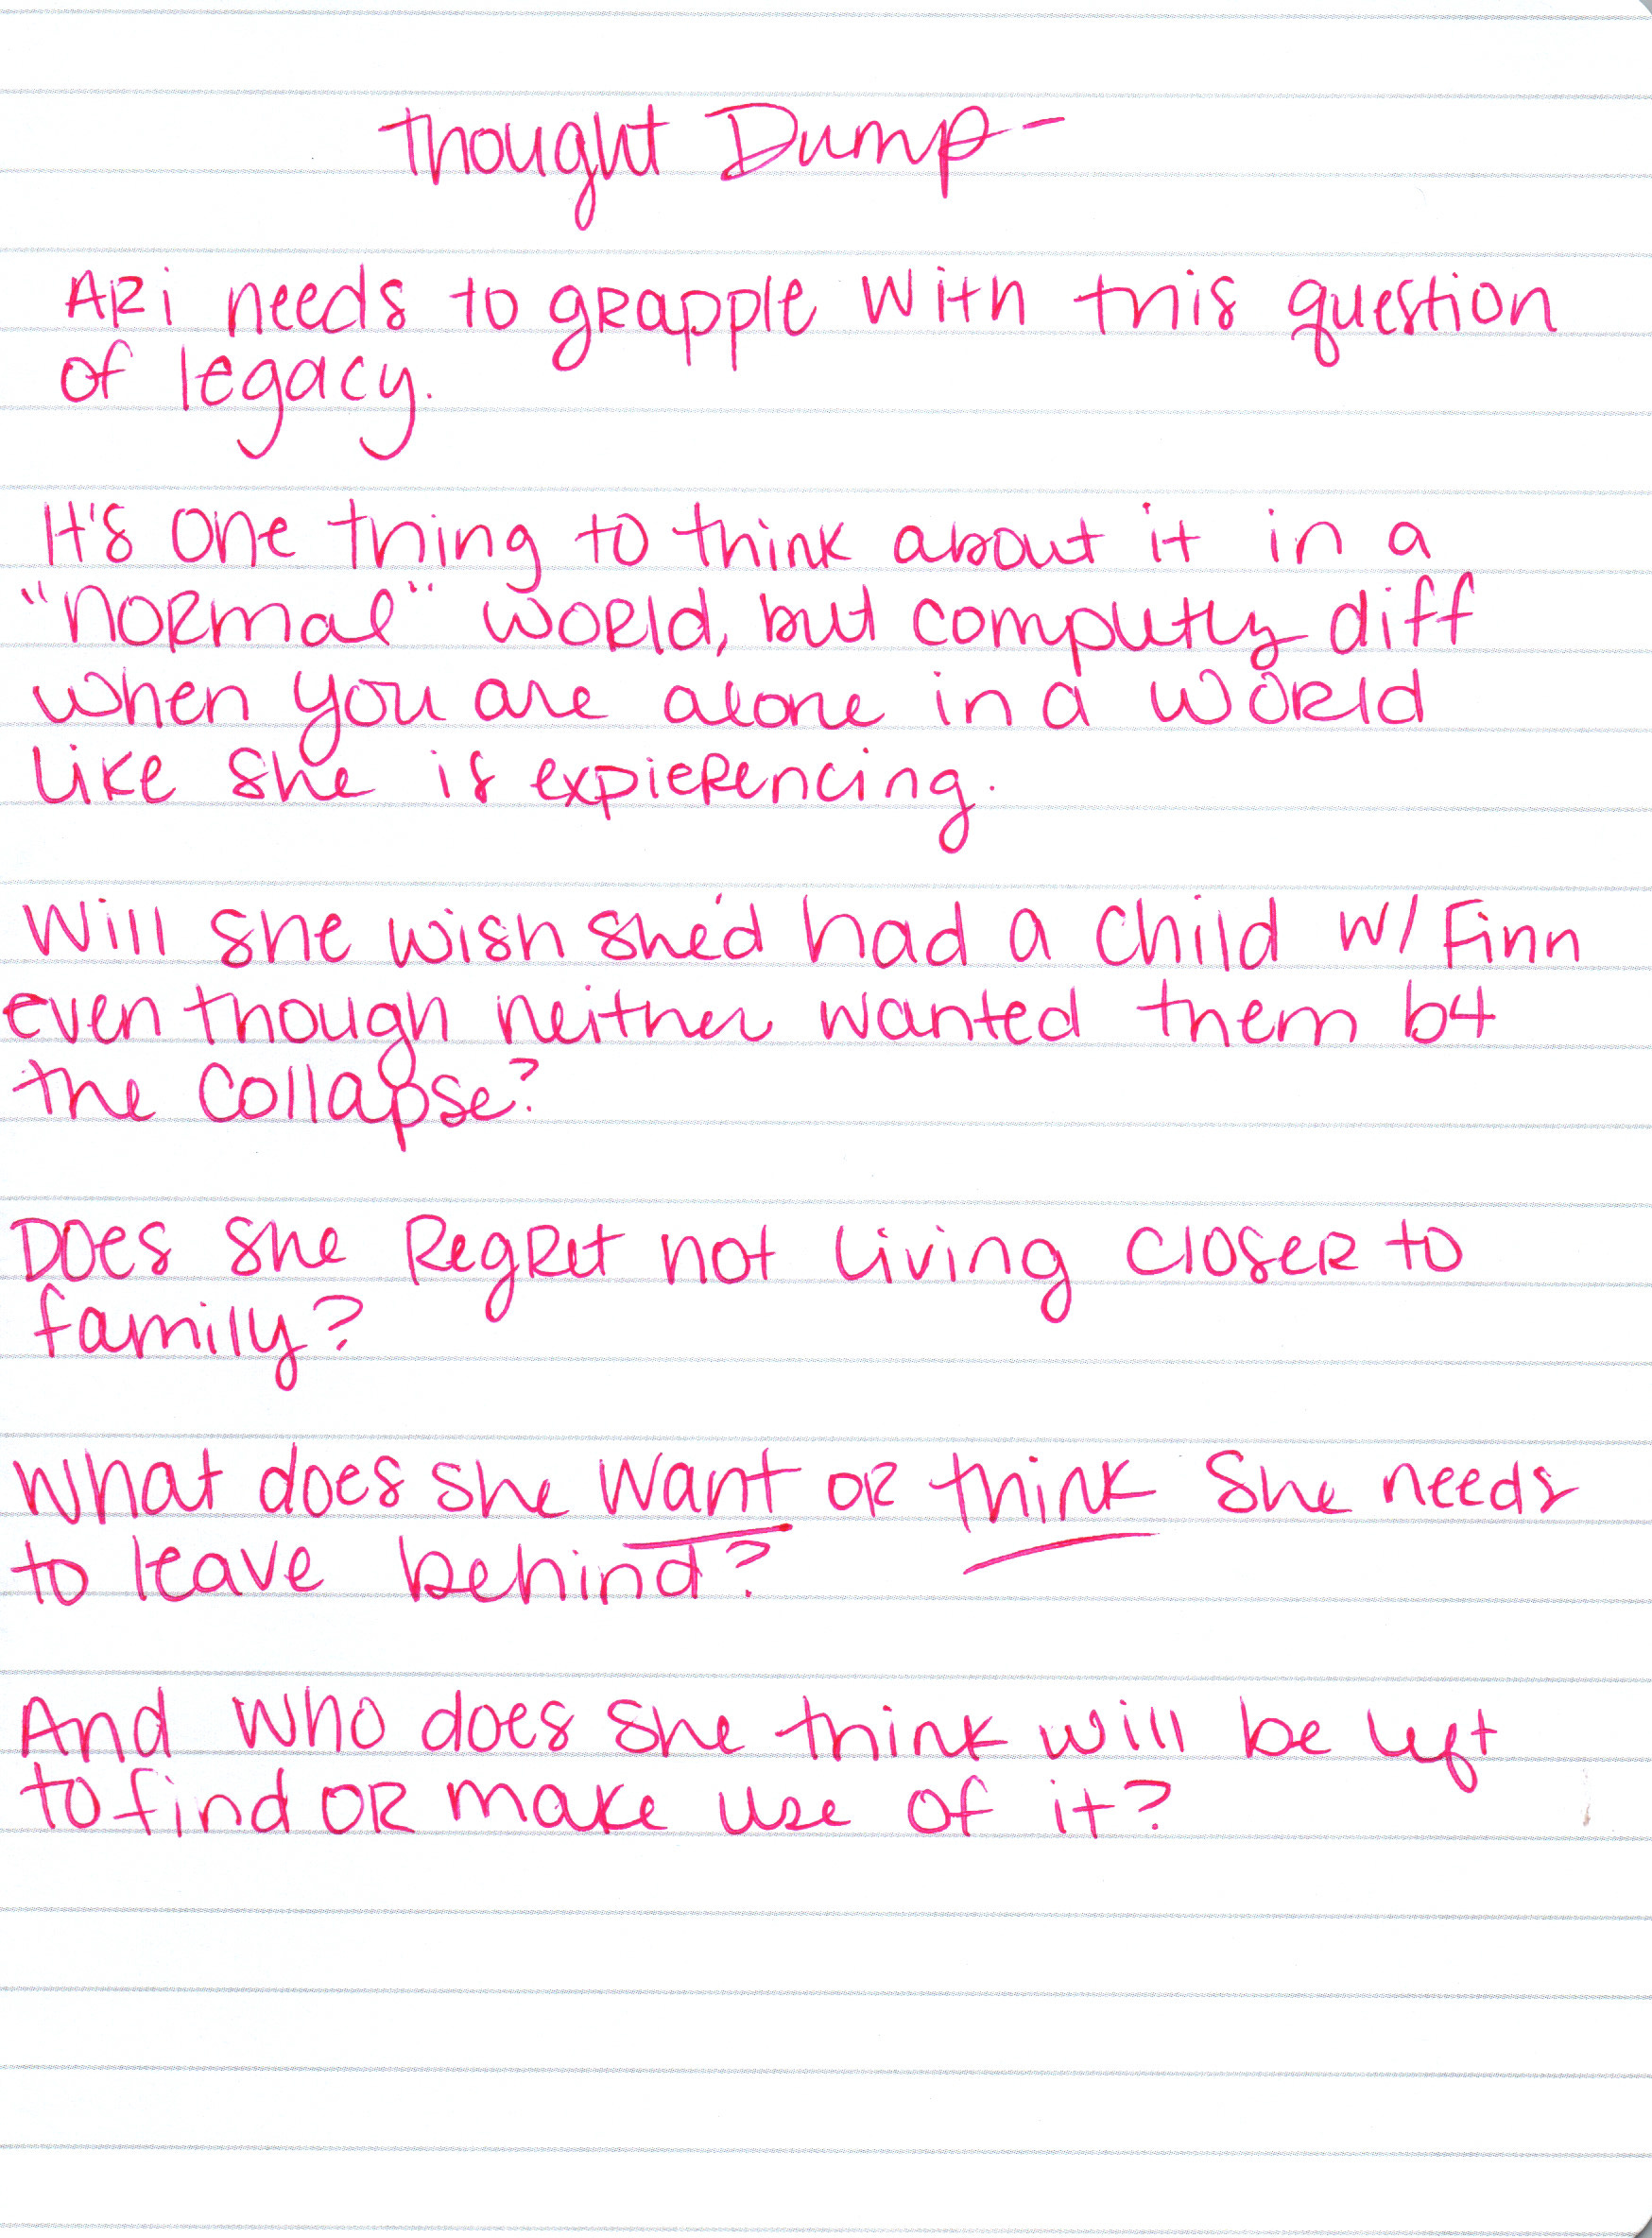 Thought Dump-
ARi needs to grapple with this question
of legacy.
It's one thing to think about it in a
"normal" world, but completly diff
when you are alone in a world
like she is expierencing.
Will she wish she'd had a child w/ Finn
even though neither wanted them b4
the collapse?
Does she regret not living closer to
family?
What does she want or think she needs
to leave behind?
And who does she think will be left
to find or make use of it?